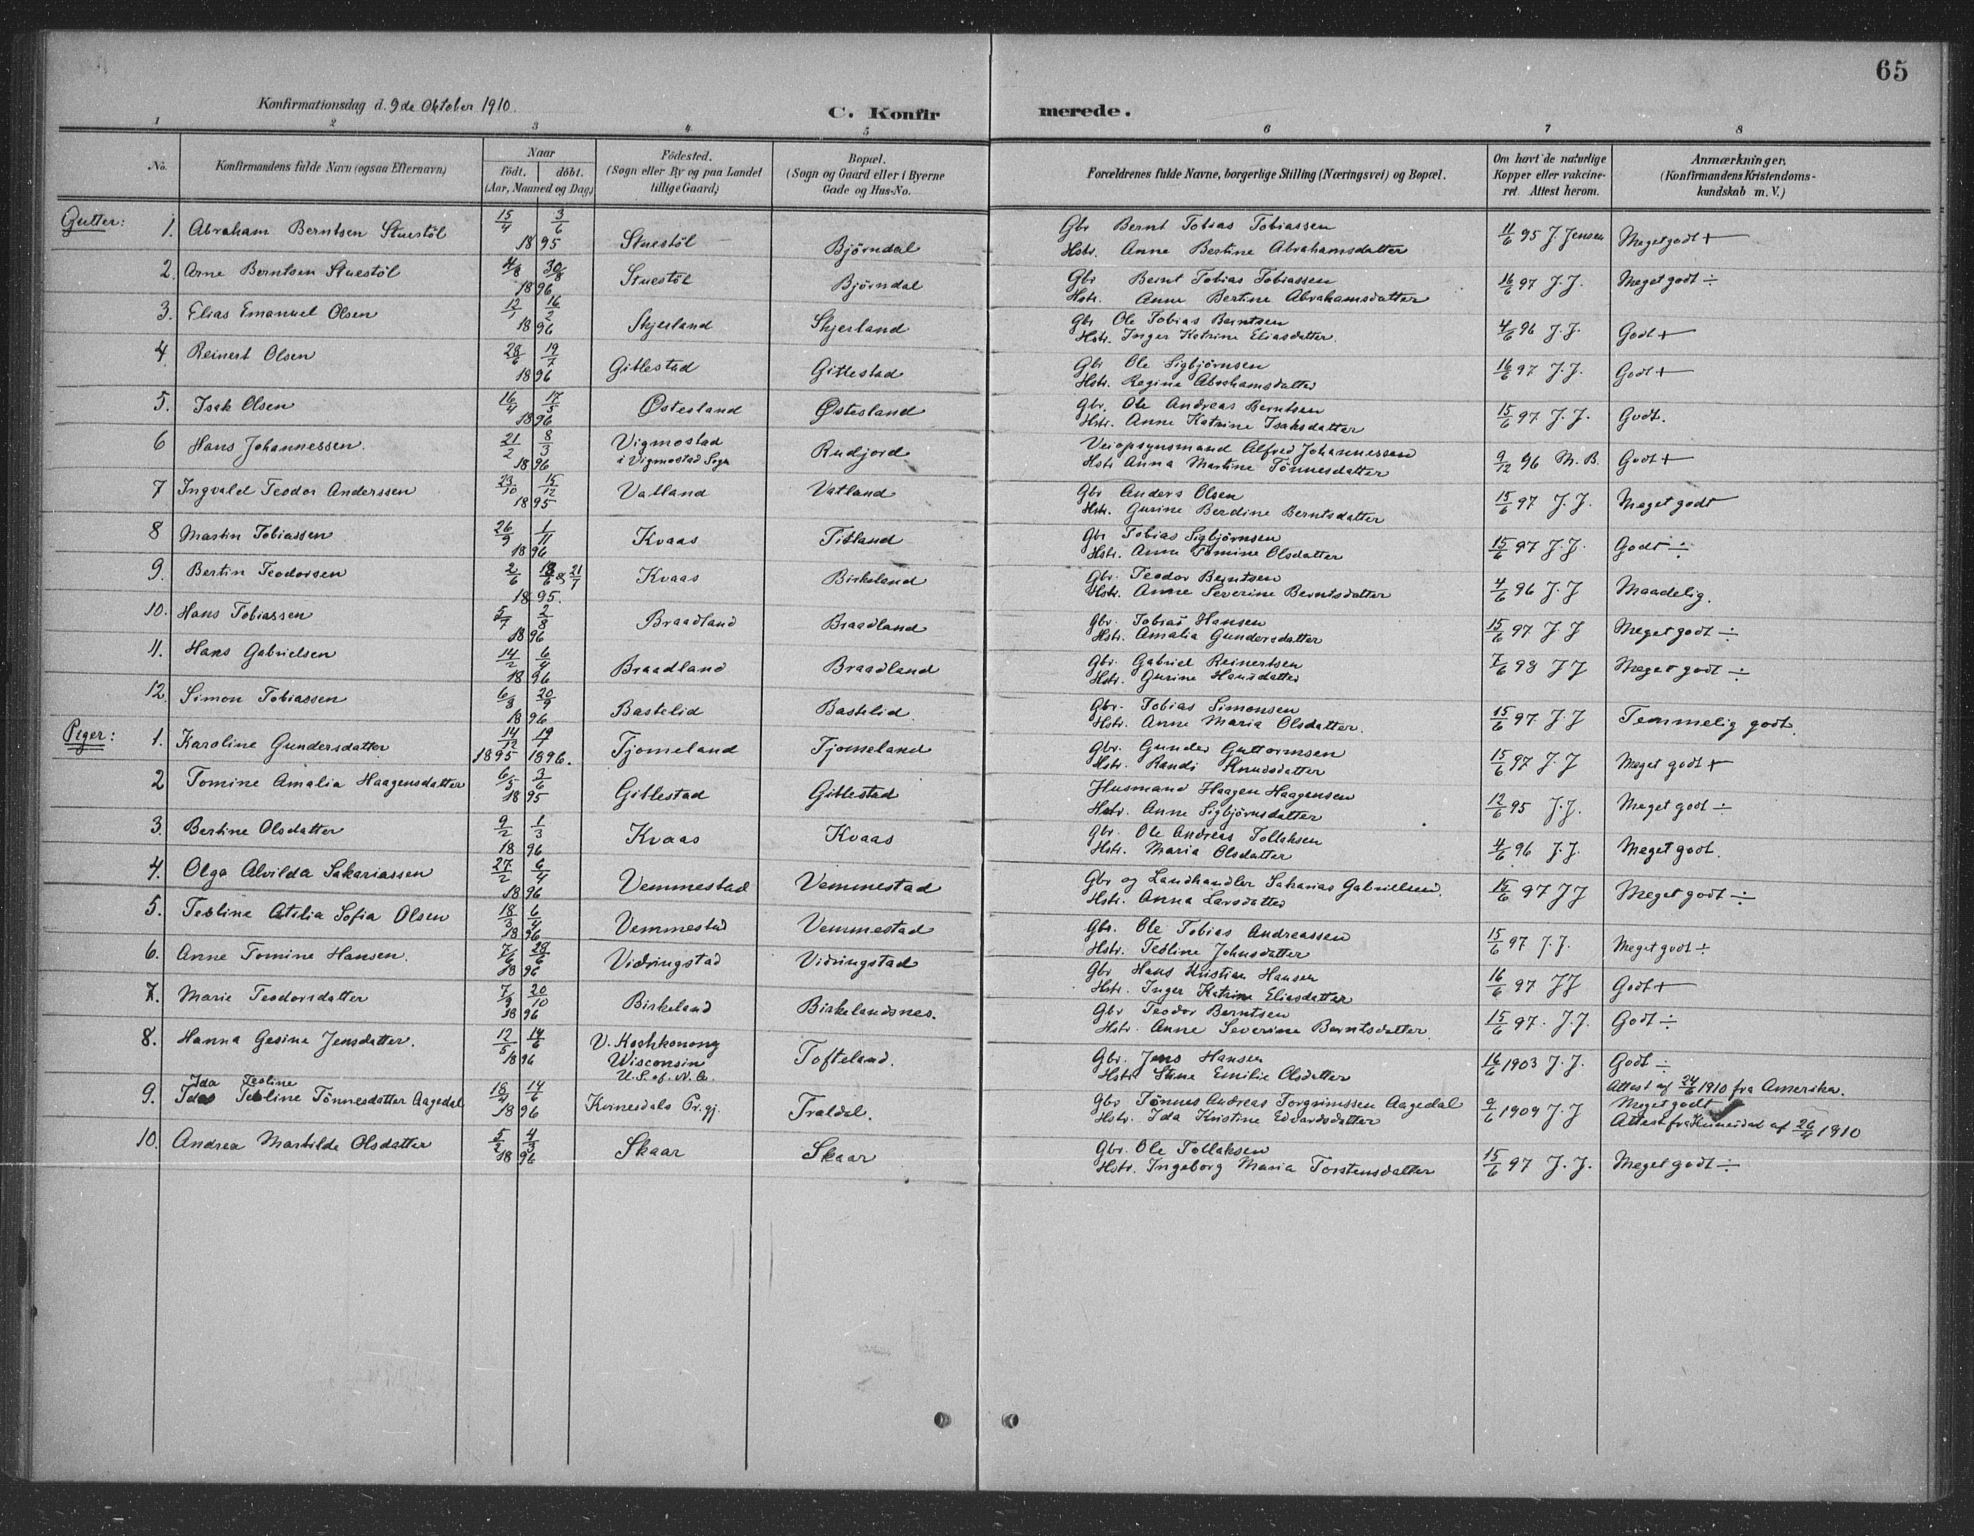 65
Konfirmationsdag d. 9de Oktober 1910.
C. Konfirmerede.
1 2 3 4 5 6 7 8
No. | Konfirmandens fulde Navn (ogsaa Efternavn) | Naar født. døbt. (Aar, Maaned og Dag) | Fødested. (Sogn eller By og paa Landet tillige Gaard) | Bopæl. (Sogn og Gaard eller i Byerne Gade og Hus-No. | Forældrenes fulde Navne, borgerlige Stilling (Næringsvei) og Bopæl. | Om havt de naturlige Kopper eller vakcineret. Attest herom. | Anmærkninger. (Konfirmandens Kristendomskundskab m. V.)
Gutter:
1. Abraham Berntsen Stuestøl 15/4 3/6 1895 Stuestøl Bjørndal Gbr Bernt Tobias Tobiassen Hstr. Anne Bertine Abrahamsdatter 11/6 95 J. Jensen Meget godt +
2. Arne Berntsen Stuestøl 4/8 30/8 1896 Stuestøl Bjørndal Gbr Bernt Tobias Tobiassen Hstr. Anne Bertine Abrahamsdatter 16/6 97 J. J. Meget godt ÷
3. Elias Emanuel Olsen 12/1 16/2 1896 Skjerland Skjerland Gbr Ole Tobias Berntsen Hstr. Inger Katrine Eliasdatter. 4/6 96 J. J. Godt +
4 Reinert Olsen 28/6 19/7 1896 Gitlestad Gitlestad Gbr Ole Sigbjørnsen Hstr. Regine Abrahamsdatter 16/6 97 J. J. Godt +
5. Isak Olsen 16/4 17/5 1896 Østesland Østesland Gbr. Ole Andreas Berntsen Hstr. Anne Katrine Isaksdatter 15/6 97 J. J. Godt.
6 Hans Johannessen. 21/2 8/3 1896 Vigmostad i Vigmostad Sogn Rudjord Veiopsynsmand Alfred Johannessen Hstr Anna Martine Tønnesdatter 9/12 96 M. B. Godt +
7 Ingvald Teodor Anderssen 23/10 15/12 1895 Vatland Vatland Gbr Anders Olsen Hstr. Gurine Berdine Berntsdatter 15/6 97 J. J. Meget godt
8 Martin Tobiassen 26/9 1/11 1896 Kvaas Titland Gbr Tobias Sigbjørnsen Hstr. Anne Tomine Olsdatter 15/6 97 J. J. Godt ÷
9. Bertin Teodorsen 2/6 18/6 & 21/7 1895. Kvaas Birkeland Gbr. Teodor Berntsen Hstr. Anne Severine Berntsdatter 4/6 96 J. J Maadelig.
10. Hans Tobiassen 5/7 2/8 1896 Braadland Braadland Gbr. Tobias Hansen Hstr. Amalia Gundersdatter 15/6 97 J J Meget godt ÷
11. Hans Gabrielsen 14/2 6/4 1896 Braadland Braadland Gbr. Gabriel Reinertsen Hstr. Gurine Hansdatter 7/6 98 J J Meget godt ÷
12. Simon Tobiassen 6/8 20/9 1896 Bastelid Bastelid. Gbr. Tobias Simonsen Hstr. Anne Maria Olsdatter. 15/6 97 J J Temmelig godt.
Piger:
1. Karoline Gundersdatter 14/12 1895 19/1 1896. Tjomeland Tjomeland Gbr. Gunder Guttormsen Hstr. Randi Knudsdatter 15/6 97 J. J Meget godt +
2 Tomine Amalia Haagensdatter 6/5 3/6 1895 Gitlestad Gitlestad Husmand Haagen Haagensen Hstr. Anne Sigbjørnsdatter 12/6 95 J. J. Meget godt ÷
3. Bertine Olsdatter 9/2 1/3 1896 Kvaas Kvaas Gbr. Ole Andreas Tollaksen Hstr. Maria Olsdatter 4/6 96 J. J. Meget godt.
4. Olga Alvilda Sakariassen 27/2 6/4 1896 Vemmestad Vemmestad Gbr og Landhandler Sakarias Gabrielsen. Hstr. Anna Larsdatter 15/6 97 J J Meget godt ÷
5. Tesline Atilia Sofia Olsen 18/3 6/4 1896 Vemmestad Vemmestad Gbr. Ole Tobias Andreassen Hstr. Tesline Johnsdatter 15/6 97 J. J. Meget godt ÷
6. Anne Tomine Hansen. 7/6 28/6 1896 Vidringstad Vidringstad Gbr Hans Kristian Hansen Hstr. Inger Katrine Eliasdatter 16/6 97 J J Godt +
7. Marie Teodorsdatter 7/9 20/10 1896 Birkeland Birkelandsnes. Gbr Teodor Berntsen Hstr. Anne Severine Berntsdatter 15/6 97. J. J. Godt ÷
8. Hanna Gesine Jensdatter. 12/5 14/6 1896 V. Koshkonong Wisconsin U.S. of. N. A. Tofteland. Gbr. Jens Hansen Hstr Stine Emilie Olsdatter 16/6 1903 J. J. Godt ÷ Attest af 24/6 1910 fra Amerika.
Ida Tesline
9. Tesline Tønnesdatter Aagedal 18/4 14/6 1896 Kvinesdals Pr.gj. Traldal. Gbr Tønnes Andreas Torgrimssen Aagedal Hstr. Ida Kristine Edvardsdatter 9/6 1909 J. J Meget godt Attest fra Kvinesdal af 26/9 1910
10. Andrea Mathilde Olsdatter 5/2 4/3 1896 Skaar Skaar Gbr. Ole Tollaksen Hstr. Ingeborg Maria Torstensdatter 15/6 97 J. J. Meget godt ÷